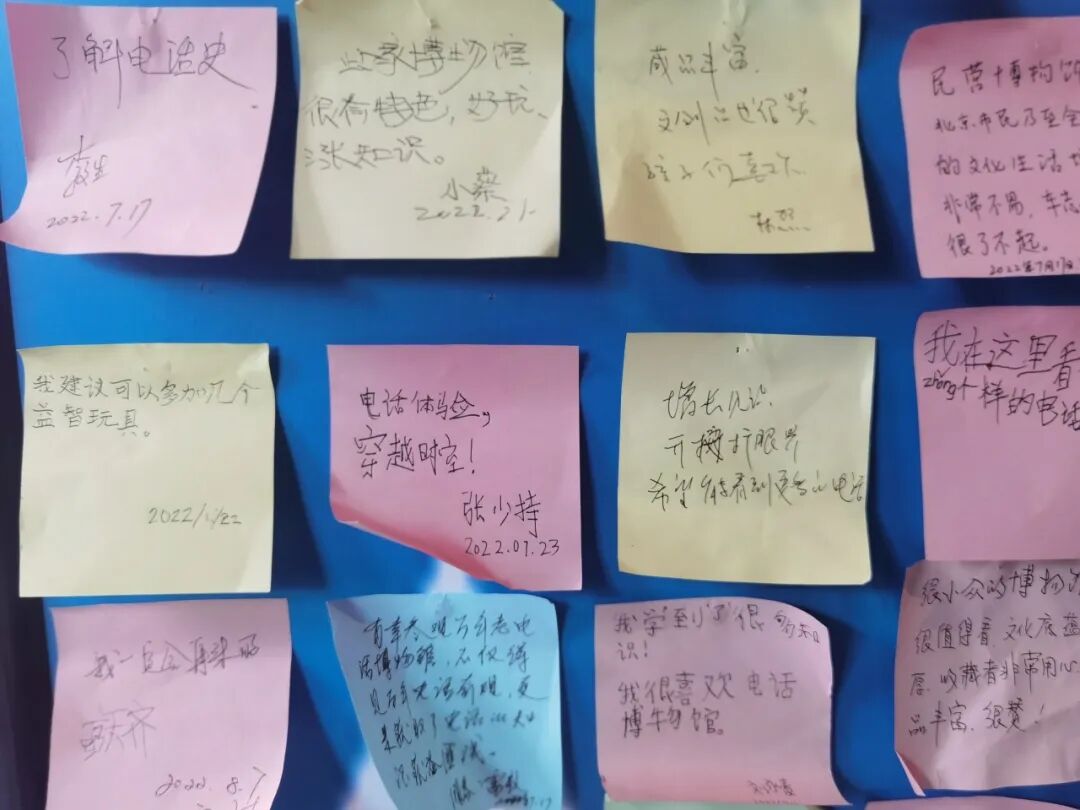 了解电话史
2022.7.17
这家博物馆
很有特色，好玩、
涨知识。
小蔡
2022.
藏品丰富
文创品也很赞
孩子们喜欢
民营博物馆
北京市民乃至全
的文化生活
非常不易，车志
很了不起。
2022年7月17日
我建议可以多加几个
益智玩具。
2022/
电话体验，
穿越时空！
张少持
2022.07.23
增长见识
开拓扩眼界
希望能看到更多的电话
我在这里看
zhǒng
样的电话
我一定会再来的
2022.8.7
有幸参观百年老电
话博物馆，不仅得
见百年电话
了电话的
我学到了很多知
识！
我很喜欢电话
博物馆。
很小众的博物馆
很值得看，文化底蕴
厚，收藏者非常用心
品丰富，很赞！